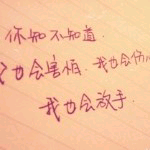 你知不知道.
也会害怕.我也会伤
我也会放手.